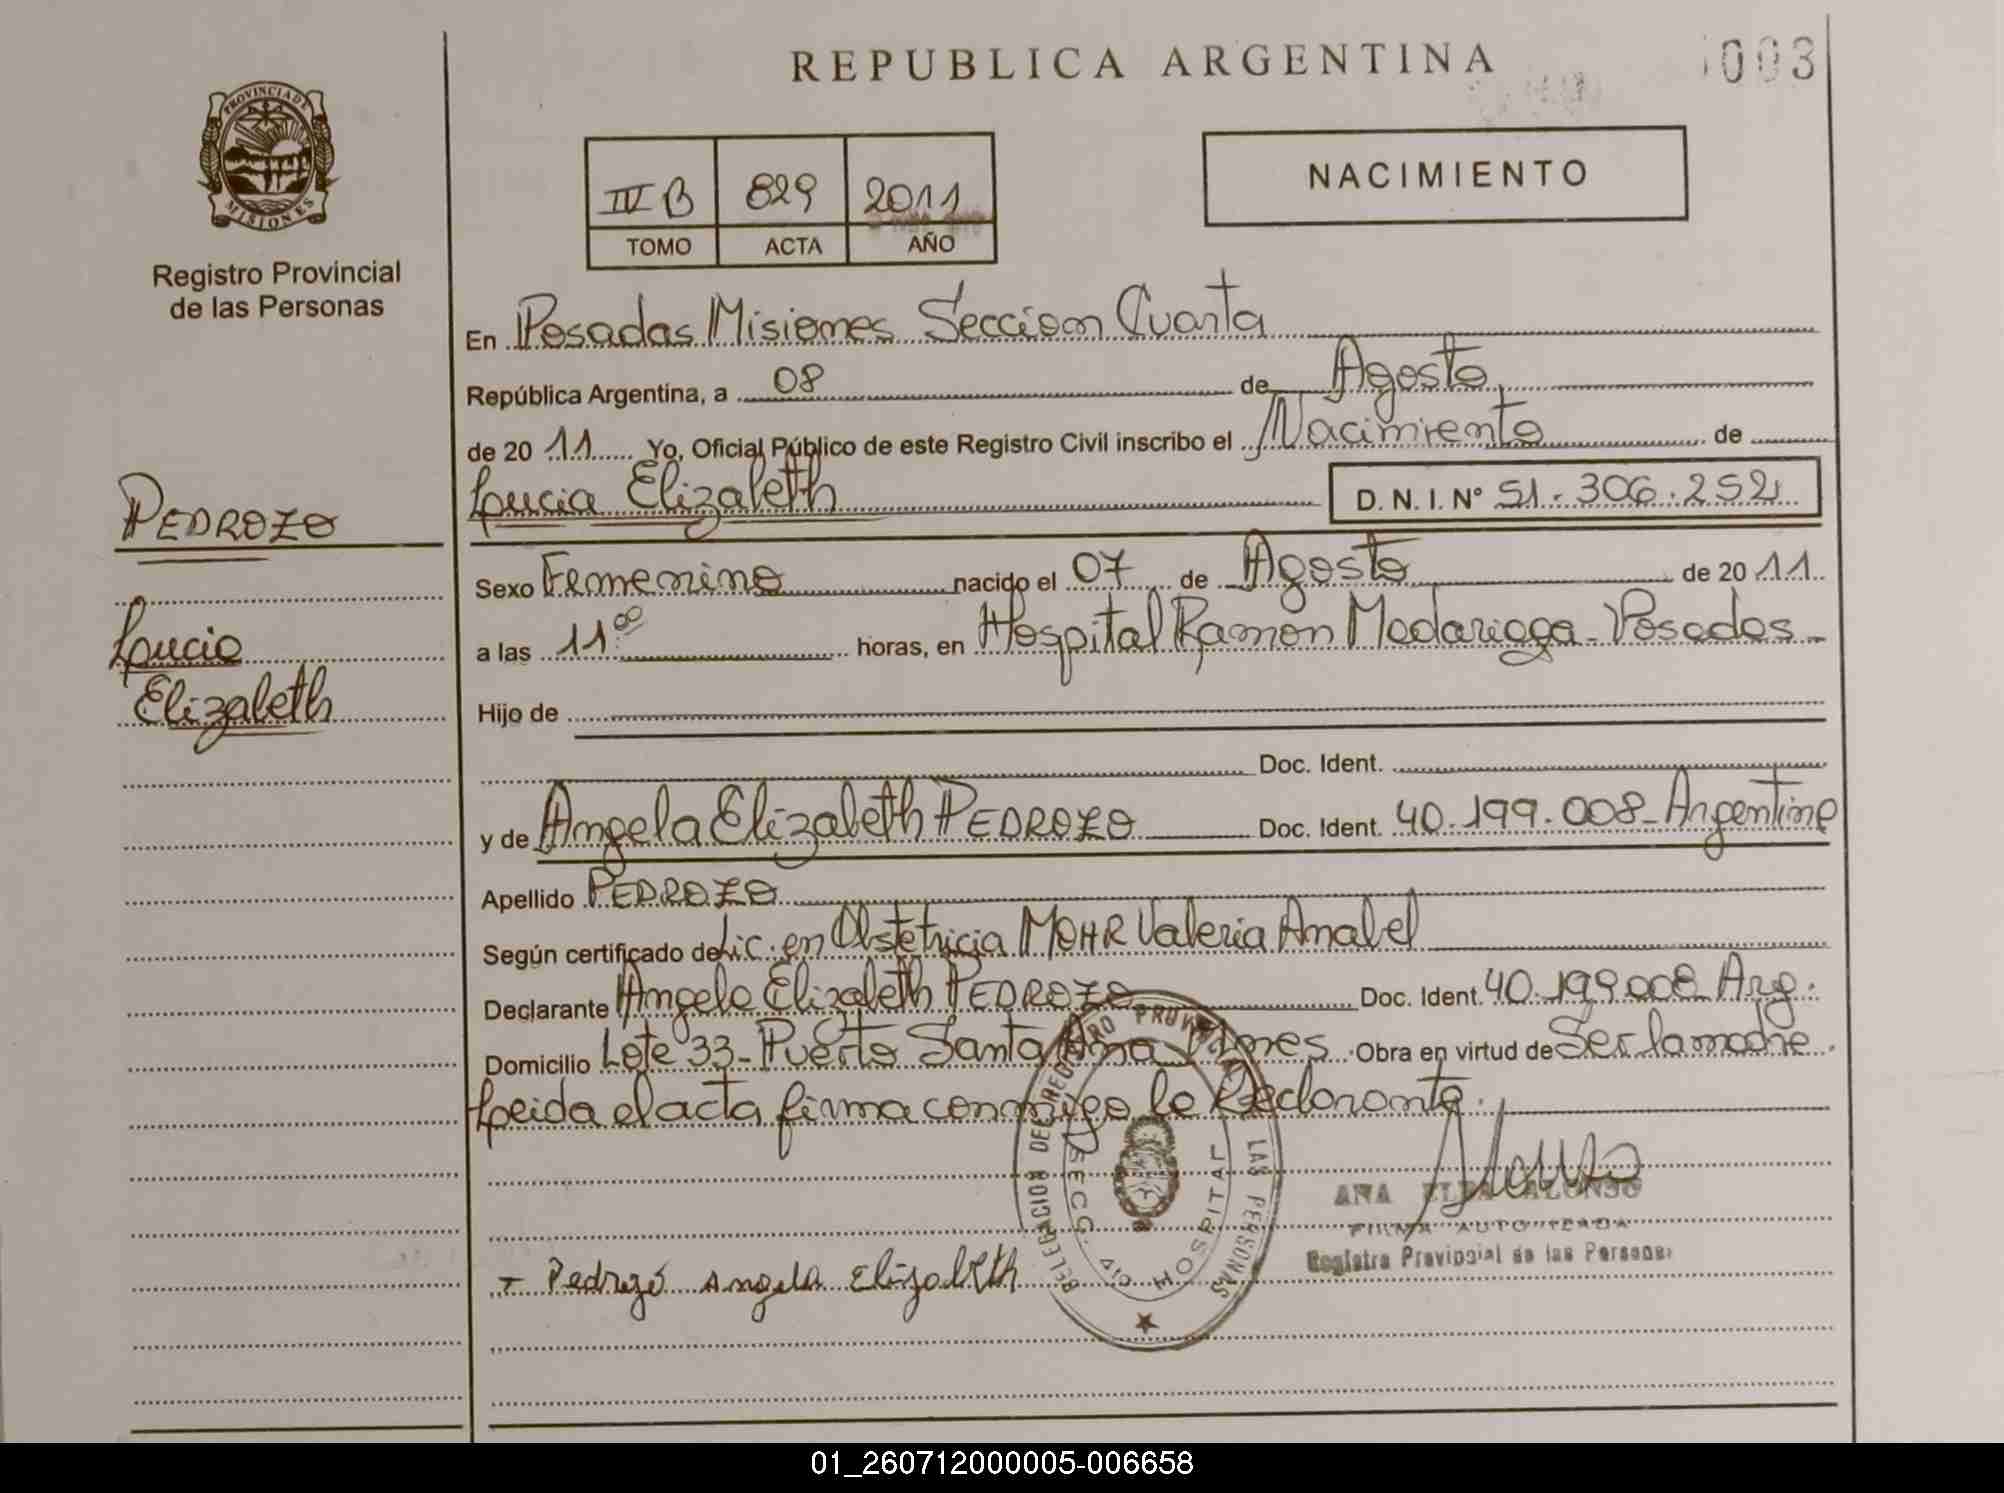 REPUBLICA ARGENTINA
003
PROVINCIA DE
MISIONES
Registro Provincial
de las Personas
IV B 829 2011
TOMO ACTA AÑO
NACIMIENTO
En Posadas Misiones Seccion Cuarta
República Argentina, a 08 de Agosto
de 2011 Yo, Oficial Público de este Registro Civil inscribo el Nacimiento de
Lucia Elizabeth D. N. I. N° 51.306.252
PEDROZO
Lucia
Elizabeth
Sexo Femenino nacido el 07 de Agosto de 2011
a las 11 00 horas, en Hospital Ramon Madariaga - Posadas -
Hijo de
Doc. Ident.
y de Angela Elizabeth PEDROZO Doc. Ident. 40.199.008 - Argentina
Apellido PEDROZO
Según certificado de Lic. en Obstetricia MOHR Valeria Anabel
Declarante Angela Elizabeth PEDROZO Doc. Ident. 40.199.008 Arg.
Domicilio Lote 33 - Puerto Santa Ana Mnes. Obra en virtud de Ser la madre.
Leida el acta firma conmigo la Declarante.
DELEGACION DEL REGISTRO PROVINCIAL DE LAS PERSONAS
SECC. 4 HOSPITAL
ANA ELBA ALONSO
FIRMA AUTORIZADA
Registro Provincial de las Personas
Pedrozo Angela Elizabeth
01_260712000005-006658